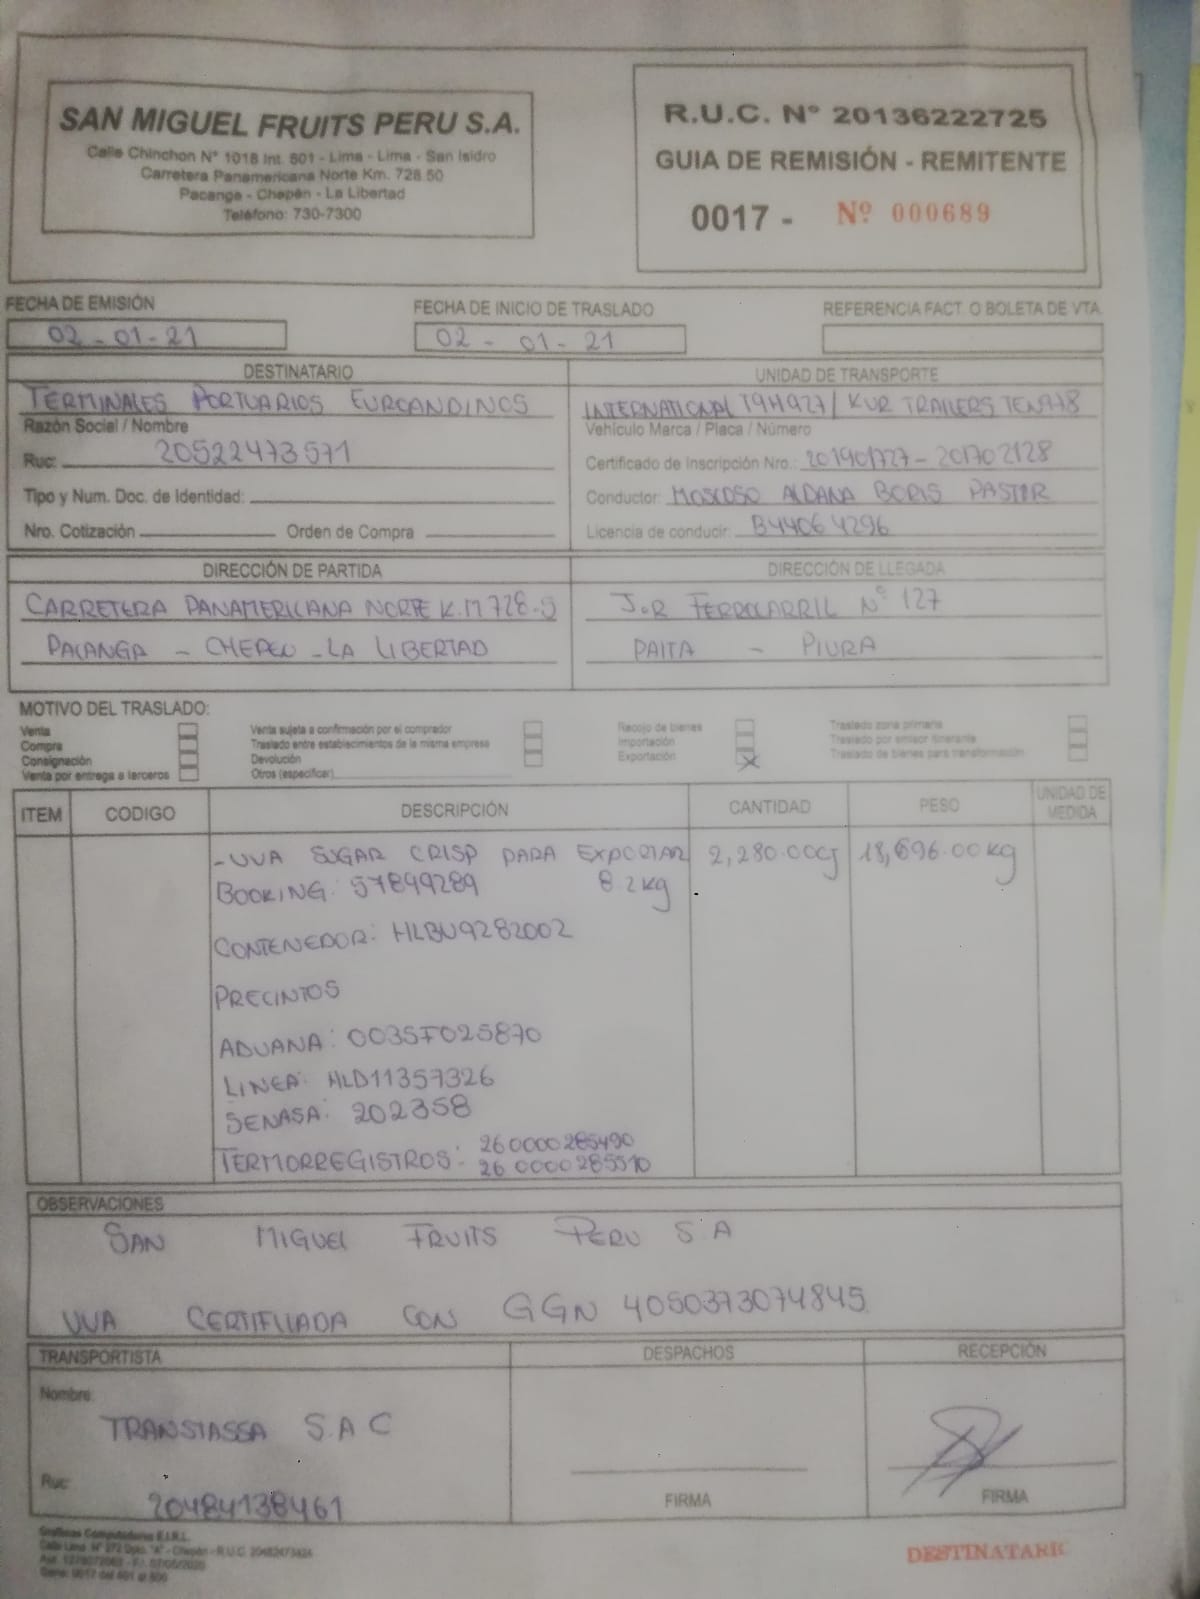 SAN MIGUEL FRUITS PERU S.A.
Calle Chinchon N° 1018 Int. 601 - Lima - Lima - San Isidro
Carretera Panamericana Norte Km. 728.50
Pacanga - Chepén - La Libertad
Teléfono: 730-7300
R.U.C. N° 20136222725
GUIA DE REMISIÓN - REMITENTE
0017 - Nº 000689
FECHA DE EMISIÓN
02-01-21
FECHA DE INICIO DE TRASLADO
02 - 01 - 21
REFERENCIA FACT. O BOLETA DE VTA.
DESTINATARIO
TERMINALES PORTUARIOS EUROANDINOS
Razón Social / Nombre
Ruc: 20522473571
Tipo y Num. Doc. de Identidad:
Nro. Cotización Orden de Compra
UNIDAD DE TRANSPORTE
INTERNATIONAL T9H927/ KUR TRAILERS TEN978
Vehículo Marca / Placa / Número
Certificado de Inscripción Nro.: 201901727-201702128
Conductor: MOSCOSO ALDANA BORIS PASTOR
Licencia de conducir: B44064296
DIRECCIÓN DE PARTIDA
CARRETERA PANAMERICANA NORTE K.M 728.5
PACANGA - CHEPEN - LA LIBERTAD
DIRECCIÓN DE LLEGADA
J.R FERROCARRIL N° 127
PAITA - PIURA
MOTIVO DEL TRASLADO:
Venta
Compra
Consignación
Venta por entrega a terceros
Venta sujeta a confirmación por el comprador
Traslado entre establecimientos de la misma empresa
Devolución
Otros (especificar)
Recojo de bienes
Importación
Exportación X
Traslado zona primaria
Traslado por emisor itinerante
Traslado de bienes para transformación
ITEM CODIGO DESCRIPCIÓN CANTIDAD PESO UNIDAD DE MEDIDA
-UVA SUGAR CRISP PARA EXPORTAR 2,280.00CJ 18,696.00kg
BOOKING: 57849289 8.2kg
CONTENEDOR: HLBU9282002
PRECINTOS
ADUANA: 0035F025870
LINEA: HLD11357326
SENASA: 202358
TERMORREGISTROS: 260000285490
260000285510
OBSERVACIONES
SAN MIGUEL FRUITS PERU S.A
UVA CERTIFICADA CON GGN 4050373074845
TRANSPORTISTA
Nombre:
TRANSTASSA S.A C
Ruc:
20484138461
DESPACHOS
FIRMA
RECEPCIÓN
FIRMA
Graficas Computadoras E.I.R.L.
DESTINATARIO